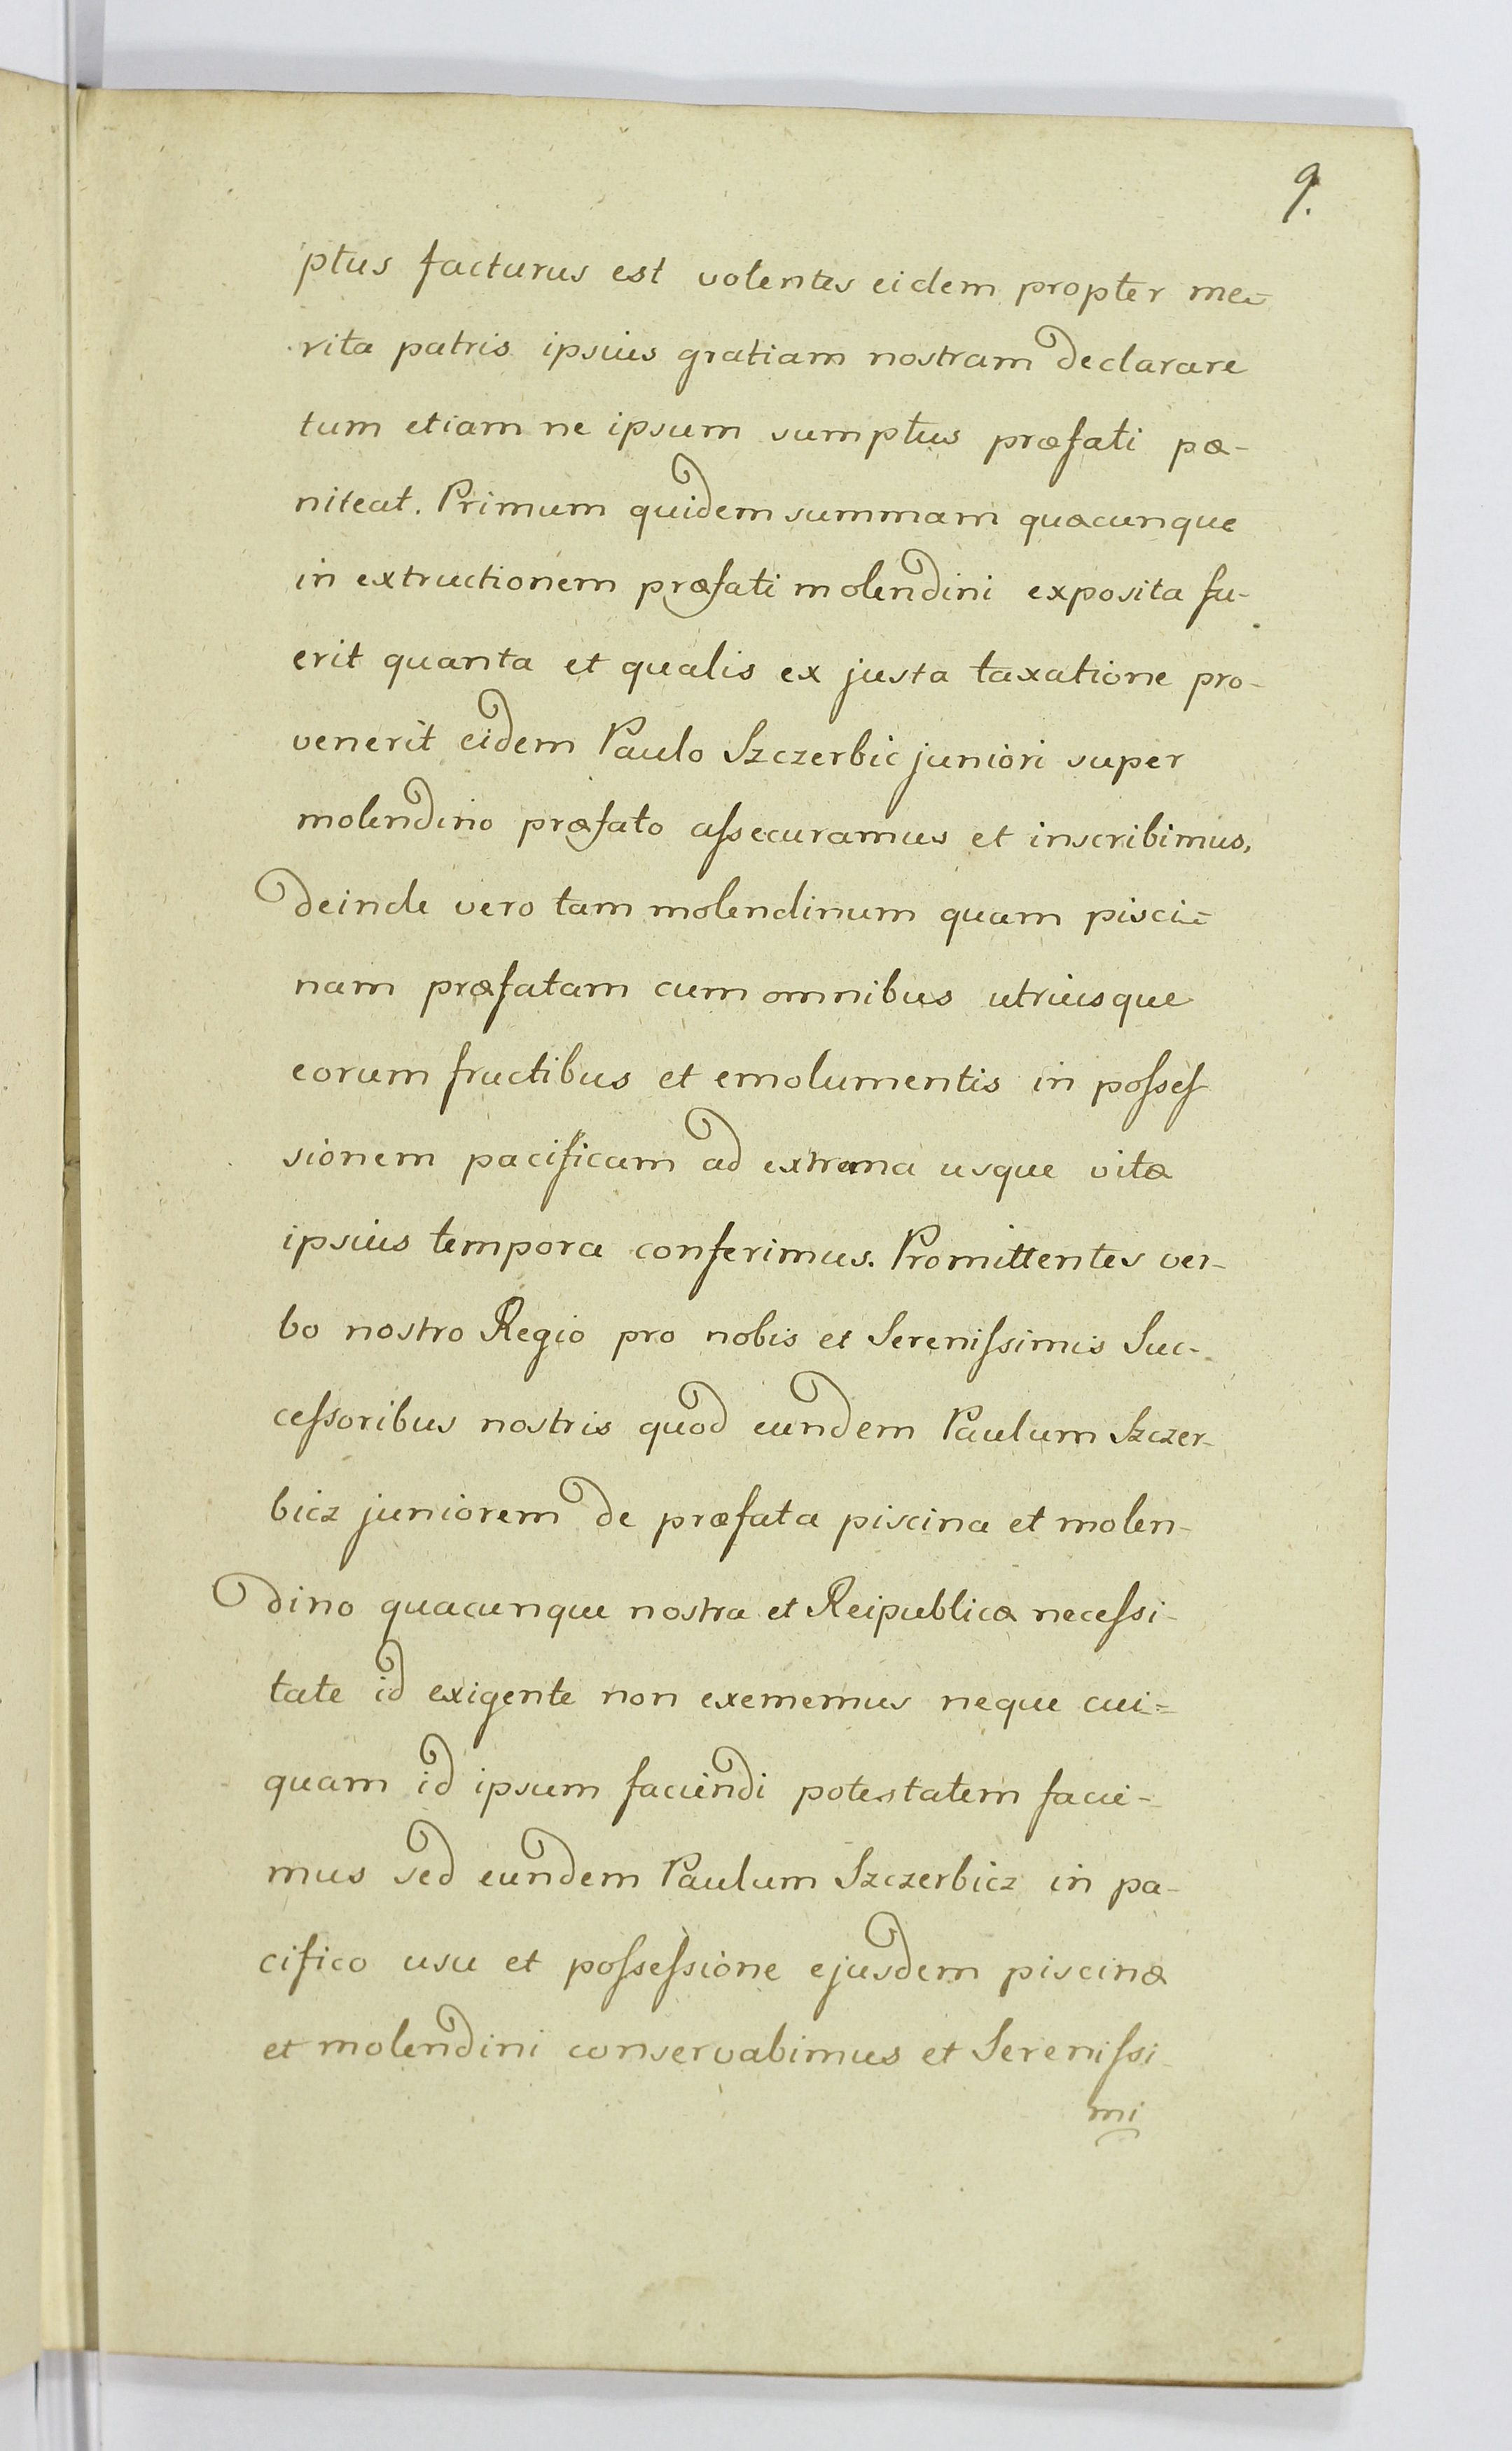 9.
ptus facturus est volentes eidem propter me=
rita patris ipsius gratiam nostram declarare
tum etiam ne ipsum sumptus præfati pæ-
niteat. Primum quidem summam quacunque
in extructionem præfati molendini exposita fu-
erit quanta et qualis ex justa taxatione pro-
venerit eidem Paulo Szczerbic juniori super
molendino præfato aſsecuramus et inscribimus,
deinde vero tam molendinum quam pisci=
nam præfatam cum omnibus utriusque
eorum fructibus et emolumentis in poſseſ
sionem pacificam ad extrema usque vitæ
ipsius tempora conferimus. Promittentes ver-
bo nostro Regio pro nobis et Sereniſsimis Suc-
ceſsoribus nostris quod eundem Paulum Szczer-
bicz juniorem de præfata piscina et molen-
dino quacunque nostra et Reipublicæ neceſsi-
tate id exigente non exememus neque cui=
quam id ipsum faciendi potestatem facie=
mus sed eundem Paulum Szczerbicz in pa-
cifico usu et poſseſsione ejusdem piscinæ
et molendini conservabimus et Sereniſsi-
mi